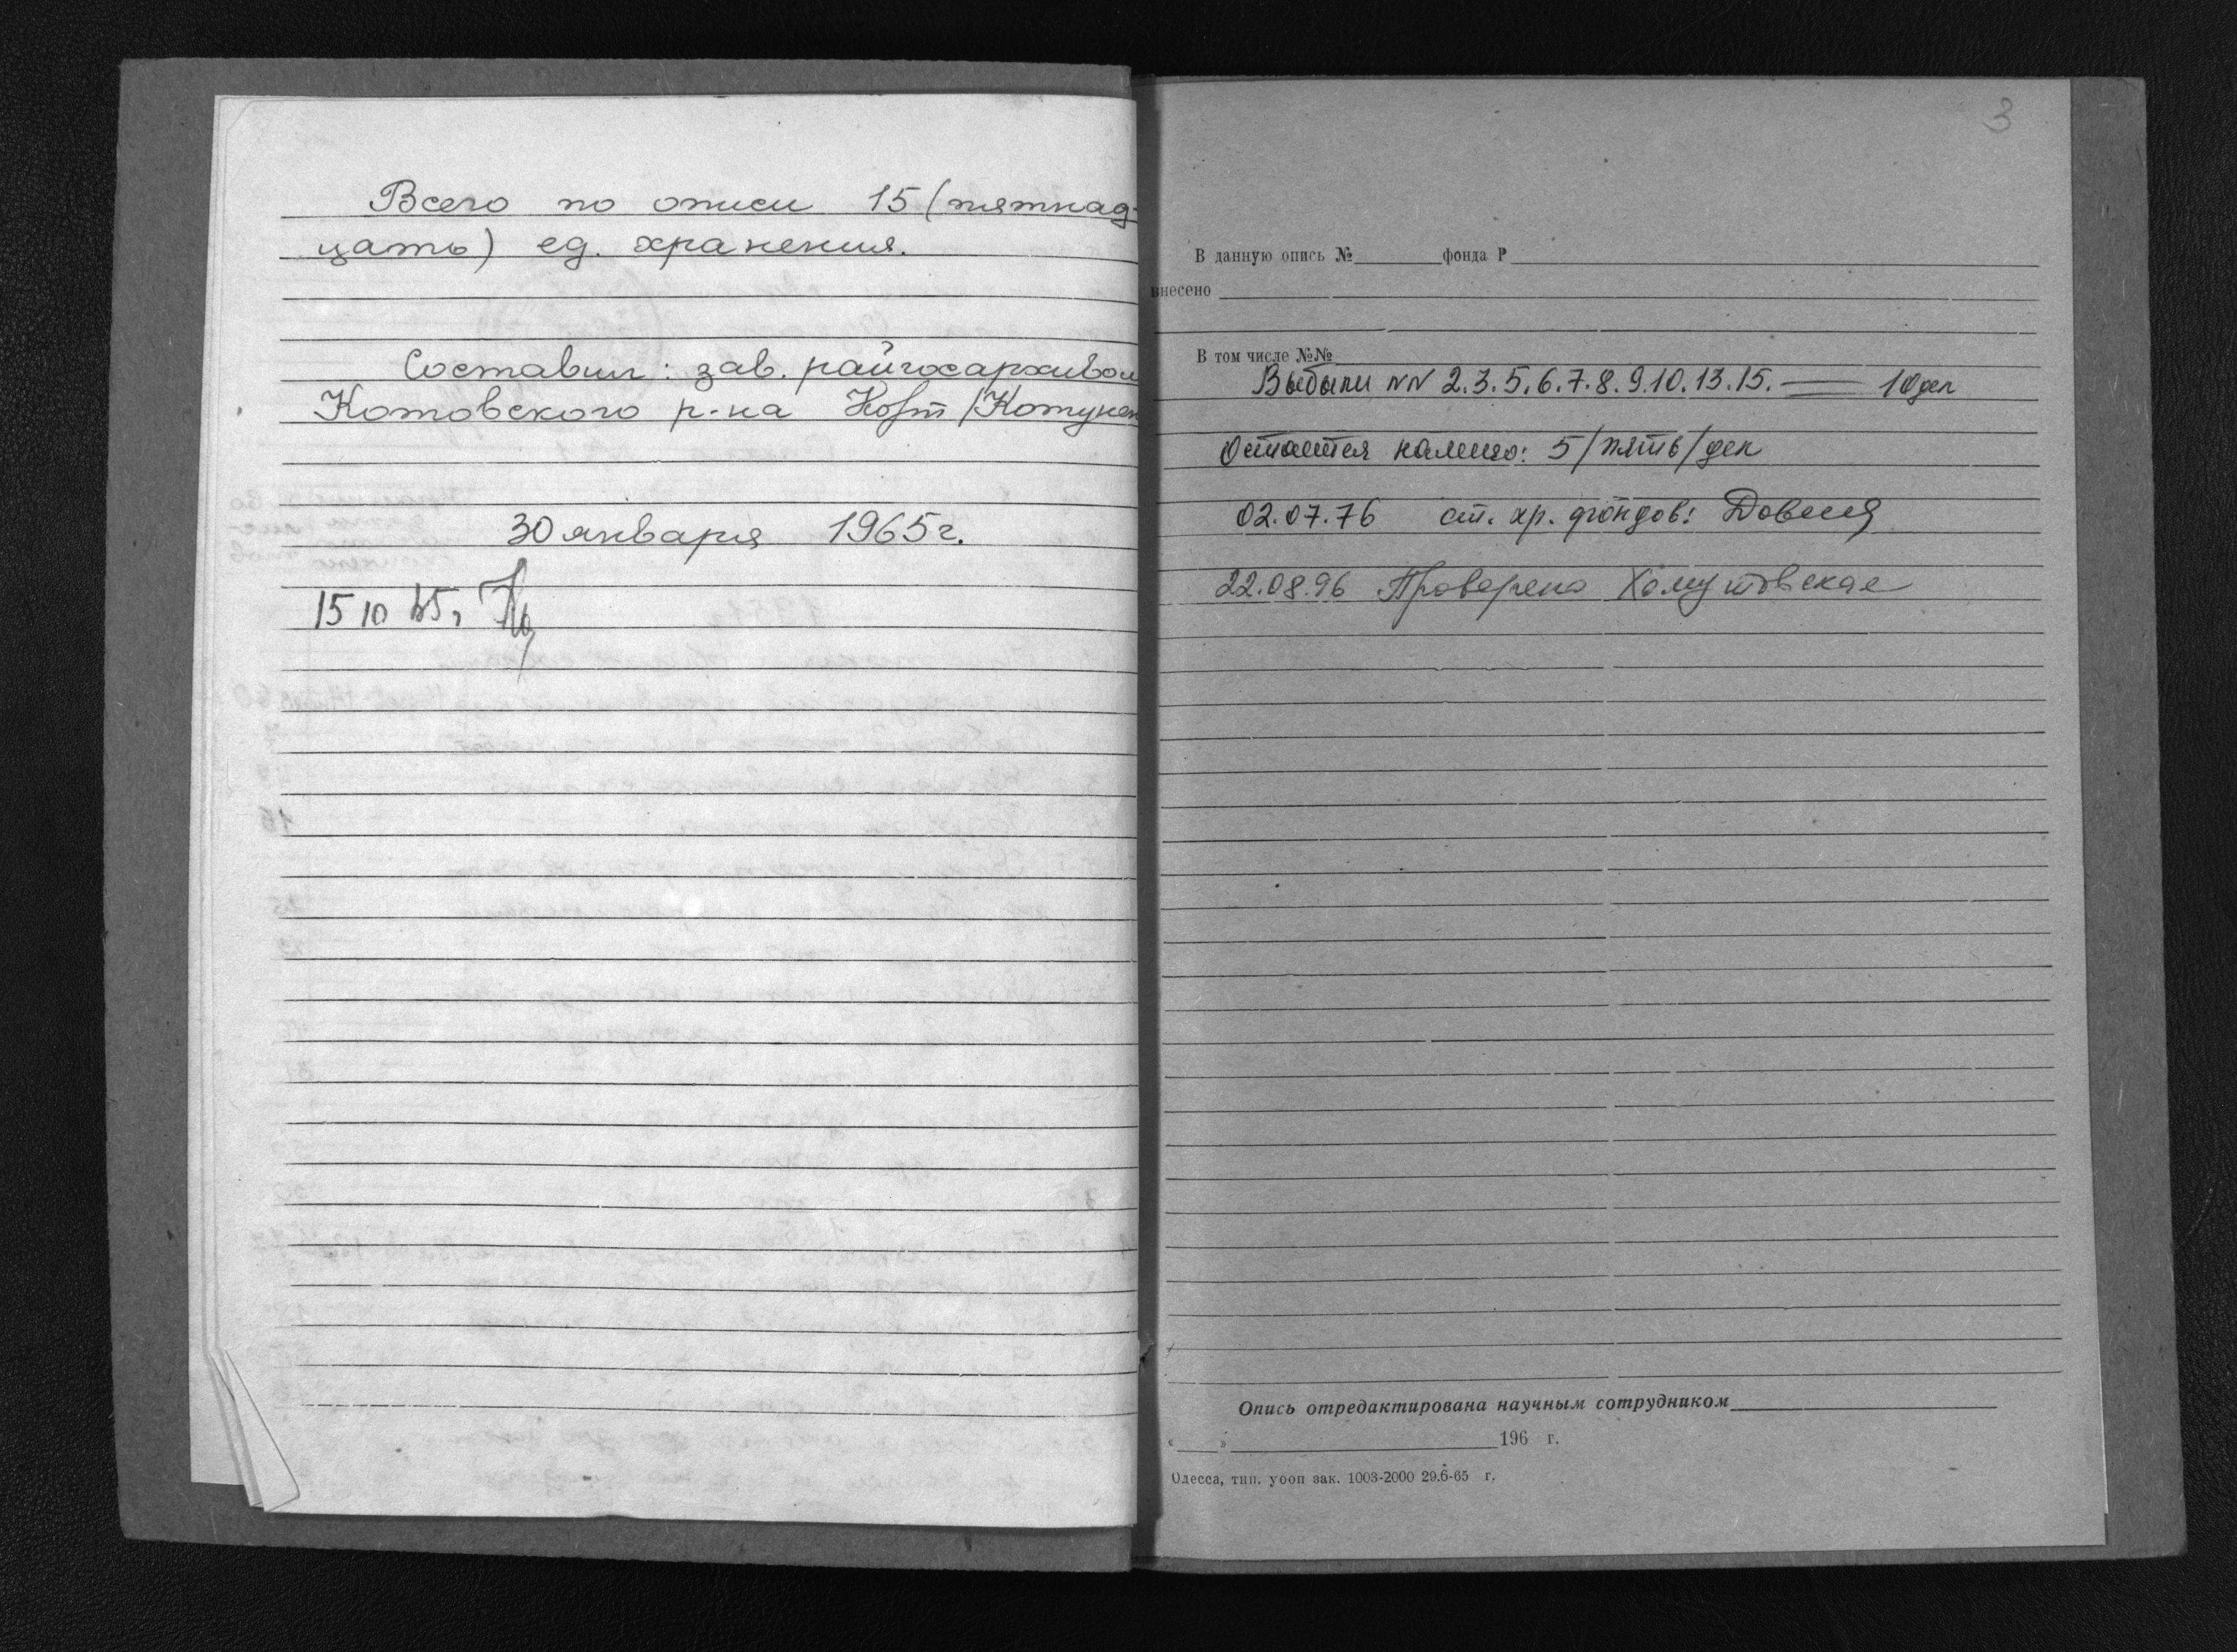 Всего по описи 15 (пятнад-
цать) ед. хранения.
Составил: зав. райгосархивом
Котовского р-на
30 января 1965 г.
15 10
3
В данную опись № фонда Р
внесено
В том числе №№
Выбыли NN 2.3.5.6.7.8.9.10.13.15. — 10 дел
Остается налицо: 5/пять/дел
02.07.76 ст. хр. фондов:
22.08.96 Проверено Хомутовская
Опись отредактирована научным сотрудником
« » 196 г.
Одесса, тип. уооп зак. 1003-2000 29.6-65 г.